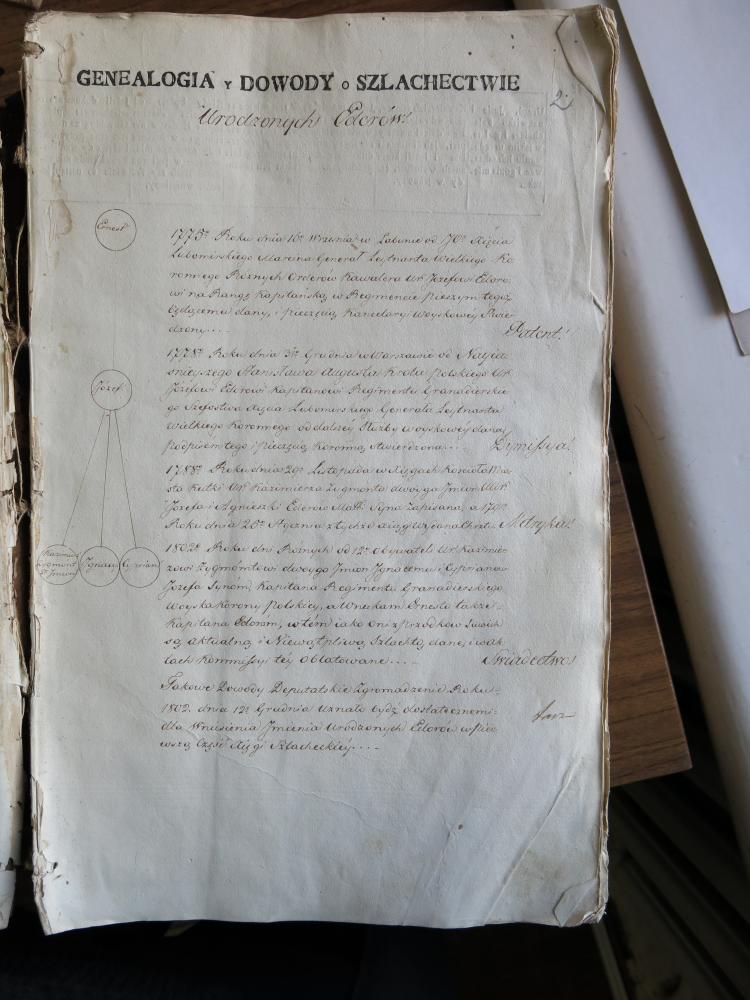 GENEALOGIA Y DOWODY O SZLACHECTWIE
2.
Urodzonych Edorów.
Ernest
1775º Roku dnia 16º Września w Łabunie od JOº Xięcia
Lubomirskiego Marcina Generał Leytnanta Wielkiego Ko
ronnego Różnych Orderów Kawalera Ur. Józefowi Edoro
wi na Rangę Kapitańską w Regimencie pieszym tegoż
Xiążęcemu dany, i pieczęcią Kancelaryi Woyskowey Stwier
dzony....
Patent.
1778º Roku dnia 3º Grudnia w Warszawie od Nayja
śnieyszego Stanisława Augusta Krola Polskiego Ur.
Józef
Józefowi Edorowi Kapitanowi Regimentu Granadierskie
go Szefostwa Xięcia Lubomirskiego Generała Leytnanta
Wielkiego Koronnego od dalszey Służby woyskowey dana,
podpisem tego i pieczęcią Koronną stwierdzona....
Dymissya.
1788º Roku dnia 20º Listopada w Xięgach Kościoła Mia
sta Kutki Ur. Kazimierza Zygmonta dwoyga Jmion Ur.
Józefa i Agnieszki Edorów Małż. Syna zapisana, a
Roku dnia 20º Stycznia z tychże Xiąg
Metryka.
1802º Roku dni Różnych od 12º obywateli Ur. Kazimie-
Kazimierz
Zygmont
2º Jmion
Ignacy
Cyprian
rzowi Zygmontowi dwoyga Jmion Jgnacemu i Cyprianowi
Józefa Synom, Kapitana Regimentu Granadierskiego
Woyska Korony Polskiey, a Wnukam Ernesta także
Kapitana Edorom, w tem iako oni z przodków Swoich
są aktualną i Niewątpliwą Szlachtą, dane, i w ak
tach Kommissyi tey Oblatowane....
Swiadectwo.
Takowe Dowody Deputatskie Zgromadzenie Roku
1802. dnia 12º Grudnia Uznało bydź dostatecznemi
dla Wniesienia Jmienia Urodzonych Edorów w Pier
wszą Część Xięgi Szlacheckiey....